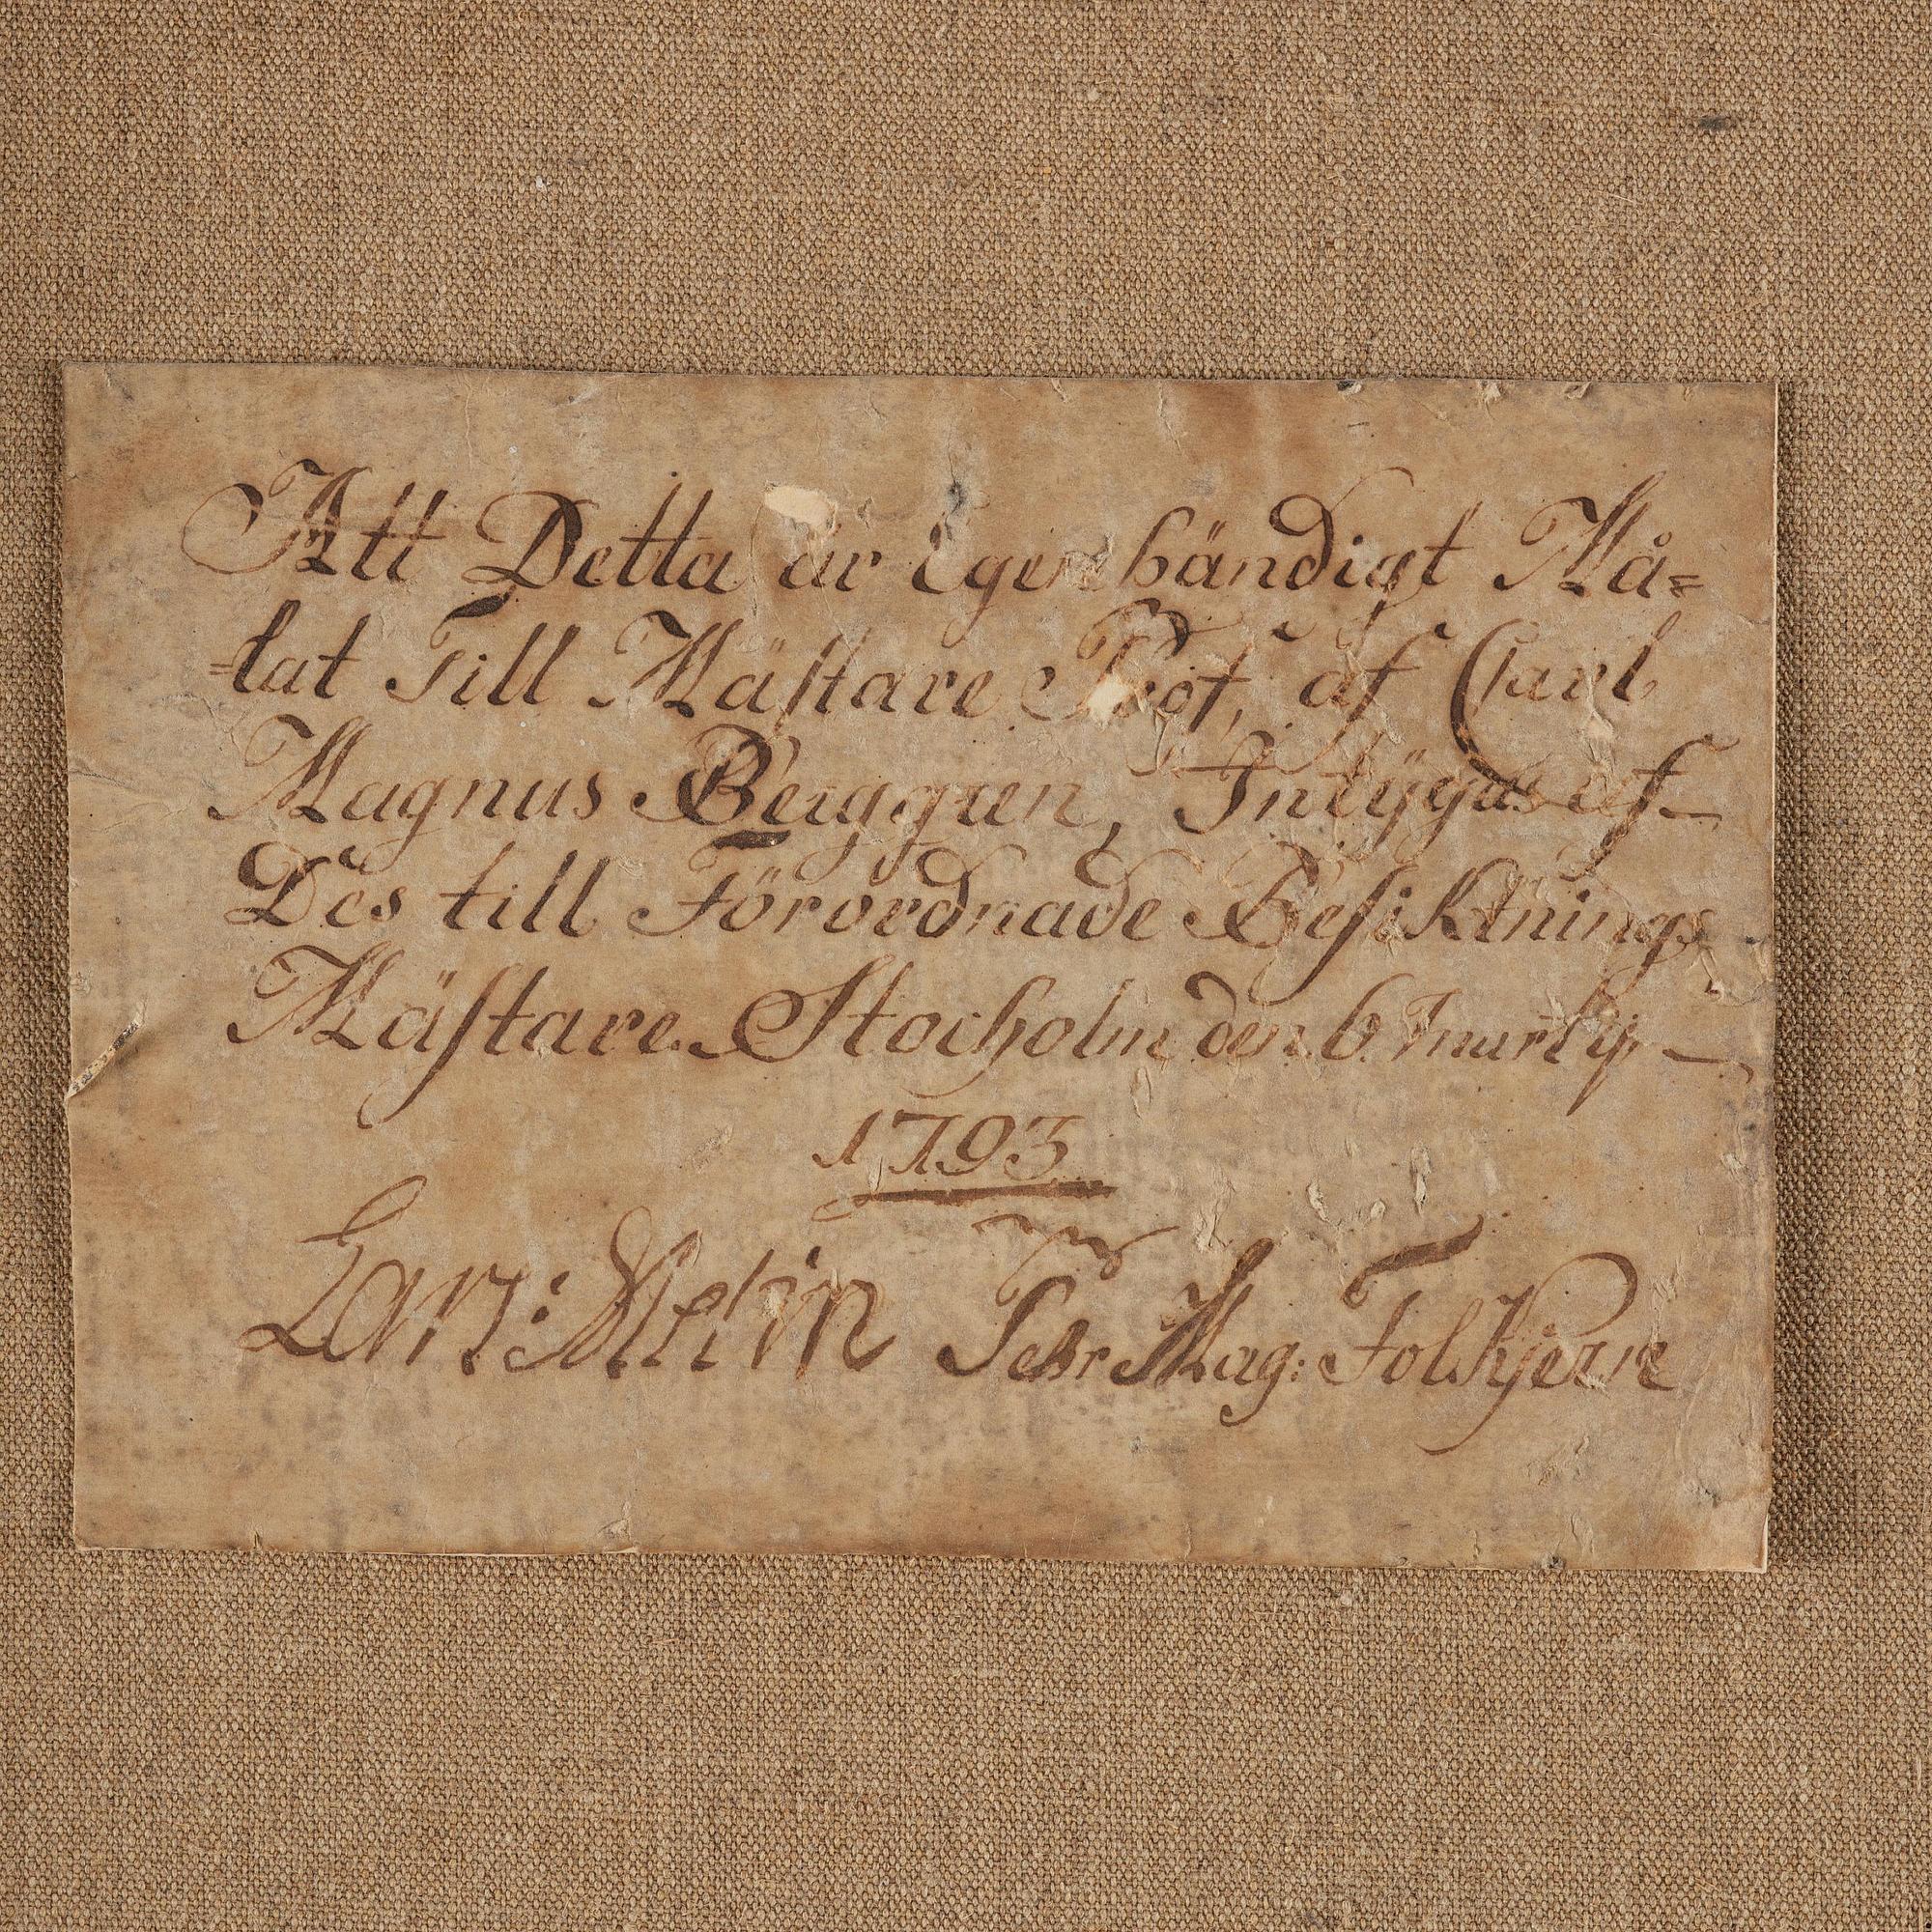 Att Detta är Egenhändigt Må=
=lat Till Mästare Prof, af Carl
Magnus Berggren, Intÿgas af
Des till Förordnade Besiktnings
Mästare Stockholm den 6
1793
Lars: Petr Mag: Folkjern